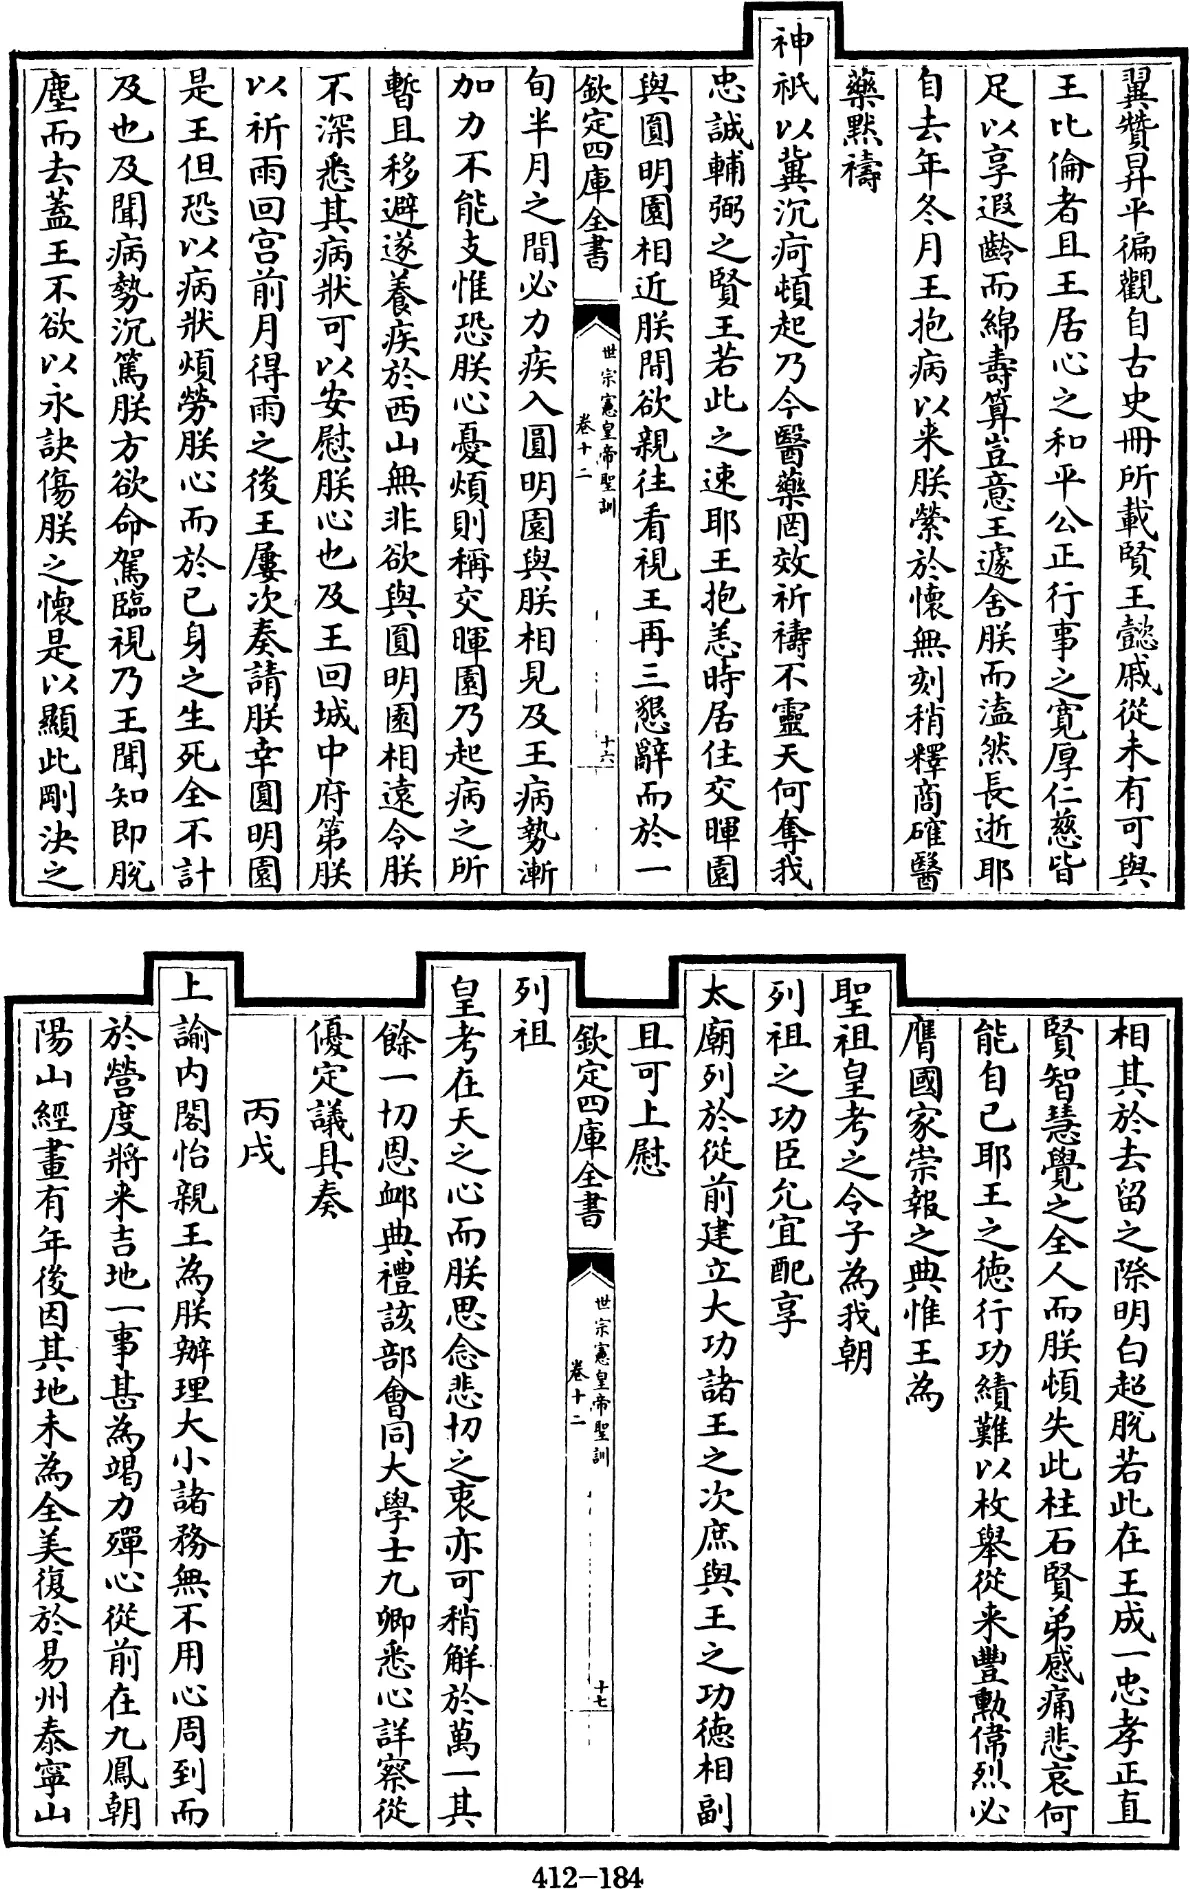 翼贊昇平徧觀自古史冊所載賢王懿戚從未有可與
王比倫者且王居心之和平公正行事之寛厚仁慈皆
足以享遐齡而綿壽算豈意王遽舍朕而溘然長逝耶
自去年冬月王抱病以来朕縈於懷無刻稍釋商確醫
藥默禱
神祇以冀沉疴頓起乃今醫藥罔效祈禱不靈天何奪我
忠誠輔弼之賢王若此之速耶王抱恙時居住交暉園
與圓明園相近朕間欲親往看視王再三懇辭而於一
欽定四庫全書
世宗憲皇帝聖訓
卷十二
十六
旬半月之間必力疾入圓明園與朕相見及王病勢漸
加力不能支惟恐朕心憂煩則稱交暉園乃起病之所
暫且移避遂養疾於西山無非欲與圓明園相遠令朕
不深悉其病狀可以安慰朕心也及王回城中府第朕
以祈雨回宫前月得雨之後王屢次奏請朕幸圓明園
是王但恐以病狀煩勞朕心而於己身之生死全不計
及也及聞病勢沉篤朕方欲命駕臨視乃王聞知即脱
塵而去蓋王不欲以永訣傷朕之懷是以顯此剛決之
相其於去留之際明白超脱若此在王成一忠孝正直
賢智慧覺之全人而朕頓失此柱石賢弟感痛悲哀何
能自已耶王之徳行功績難以枚舉從来豐勲偉烈必
膺國家崇報之典惟王為
聖祖皇考之令子為我朝
列祖之功臣允宜配享
太廟列於從前建立大功諸王之次庶與王之功徳相副
且可上慰
欽定四庫全書
世宗憲皇帝聖訓
卷十二
十七
列祖
皇考在天之心而朕思念悲切之衷亦可稍解於萬一其
餘一切恩卹典禮該部會同大學士九卿悉心詳察從
優定議具奏
丙戌
上諭内閣怡親王為朕辦理大小諸務無不用心周到而
於營度將来吉地一事甚為竭力殫心從前在九鳳朝
陽山經畫有年後因其地未為全美復於易州泰寧山
412-184